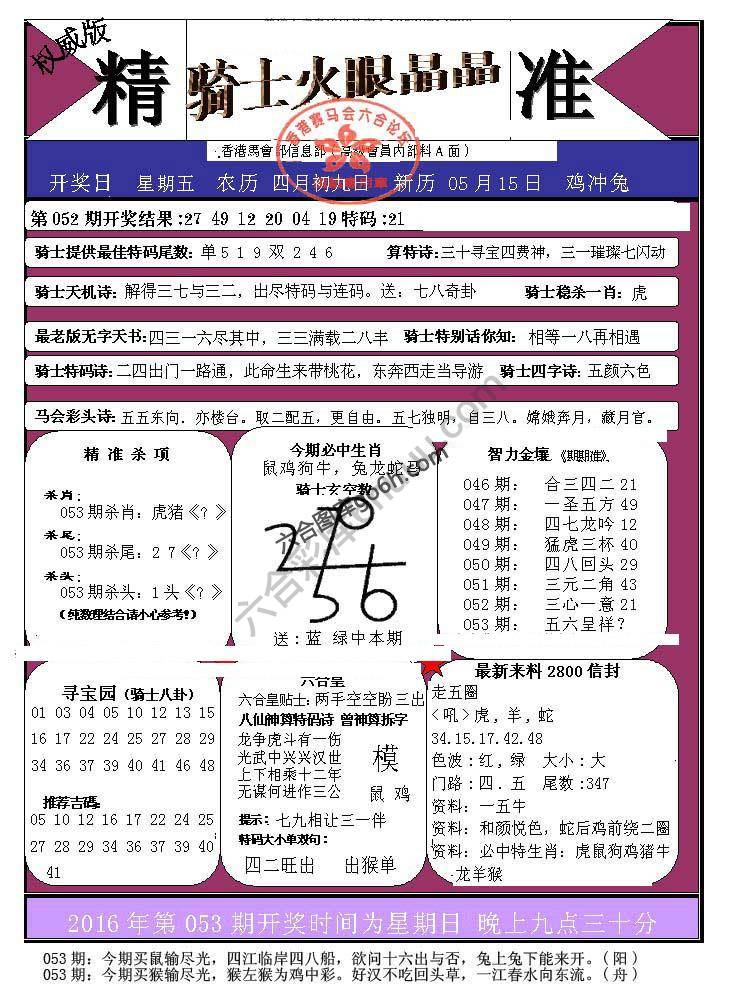 权威版
精 骑士火眼晶晶 准
香港赛马会六合论坛
·香港馬會部信息部(高級會員內部料A面)
开奖日 星期五 农历 四月初九日 新历 05月15日 鸡冲兔
第052期开奖结果:27 49 12 20 04 19特码:21
骑士提供最佳特码尾数: 单5 1 9 双 2 4 6 算特诗: 三十寻宝四费神，三一璀璨七闪动
骑士天机诗: 解得三七与三二，出尽特码与连码。送: 七八奇卦 骑士稳杀一肖: 虎
最老版无字天书:四三一六尽其中，三三满载二八丰 骑士特别话你知: 相等一八再相遇
骑士特码诗: 二四出门一路通，此命生来带桃花，东奔西走当导游 骑士四字诗: 五颜六色
马会彩头诗: 五五东向．亦楼台。取二配五，更自由。五七独明，自三八。嫦娥奔月，藏月宫。
精 准 杀 项
杀肖:
053期杀肖: 虎猪《? 》
杀尾:
053期杀尾: 2 7《? 》
杀头:
053期杀头: 1头《? 》
(纯数理结合请小心参考!)
今期必中生肖
鼠鸡狗牛，兔龙蛇马
骑士玄空数
270
456
送: 蓝 绿中本期
智力金壤 《期期准》
046期: 合三四二21
047期: 一圣五方49
048期: 四七龙吟12
049期: 猛虎三杯40
050期: 四八回头29
051期: 三元二角43
052期: 三心一意21
053期: 五六呈祥?
寻宝园 (骑士八卦)
01 03 04 05 10 12 13 15
16 17 22 24 25 27 28 29
34 36 37 39 40 41 46 48
推荐吉码:
05 10 12 16 17 22 24 25
27 28 29 34 36 37 39 40
41
六合皇
六合皇贴士: 两手空空盼三出
八仙神算特码诗 曾神算拆字
龙争虎斗有一伤
光武中兴兴汉世
上下相乘十二年
无谋何进作三公
模
鼠 鸡
提示: 七九相让三一伴
特码大小单双句:
四二旺出 出猴单
最新来料2800信封
走五圈
<吼>虎, 羊, 蛇
34.15.17.42.48
色波: 红, 绿 大小: 大
门路: 四．五 尾数:347
资料: 一五牛
资料: 和颜悦色，蛇后鸡前绕二圈
资料: 必中特生肖: 虎鼠狗鸡猪牛
龙羊猴
2016年第053期开奖时间为星期日 晚上九点三十分
053期: 今期买鼠输尽光，四江临岸四八船，欲问十六出与否，兔上兔下能来开。(阳)
053期: 今期买猴输尽光，猴左猴为鸡中彩。好汉不吃回头草，一江春水向东流。(舟)